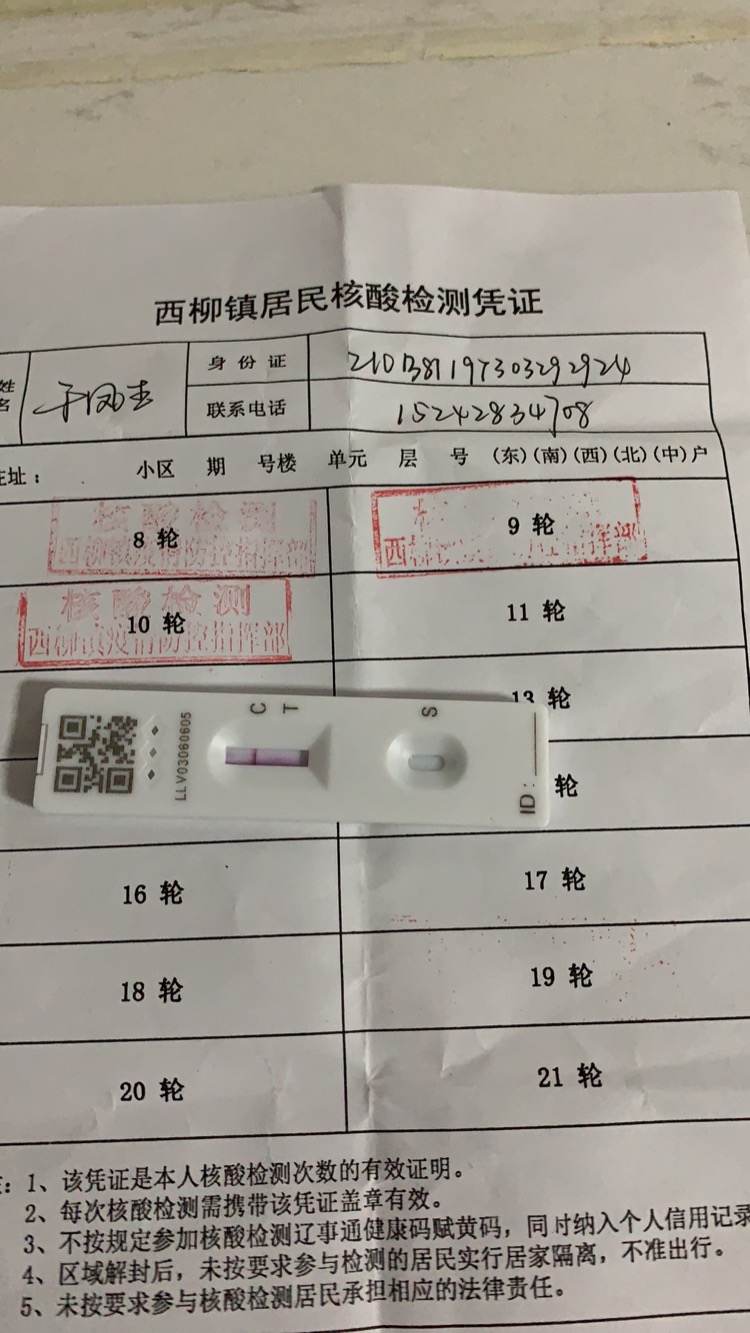 西柳镇居民核酸检测凭证
姓名 于凤 身份证 210381197303292924
联系电话 15242834708
住址： 小区 期 号楼 单元 层 号 (东)(南)(西)(北)(中)户
8 轮 核酸检测 西柳镇疫情防控指挥部
9 轮 西 指挥部
10 轮 核酸检测 西柳镇疫情防控指挥部
11 轮
13 轮
轮
C T S
LLV03060605
ID:
16 轮
17 轮
18 轮
19 轮
20 轮
21 轮
：1、该凭证是本人核酸检测次数的有效证明。
2、每次核酸检测需携带该凭证盖章有效。
3、不按规定参加核酸检测辽事通健康码赋黄码，同时纳入个人信用记录
4、区域解封后，未按要求参与检测的居民实行居家隔离，不准出行。
5、未按要求参与核酸检测居民承担相应的法律责任。